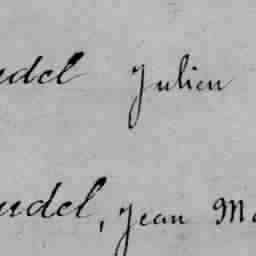 udel Julien
udel, Jean Ma